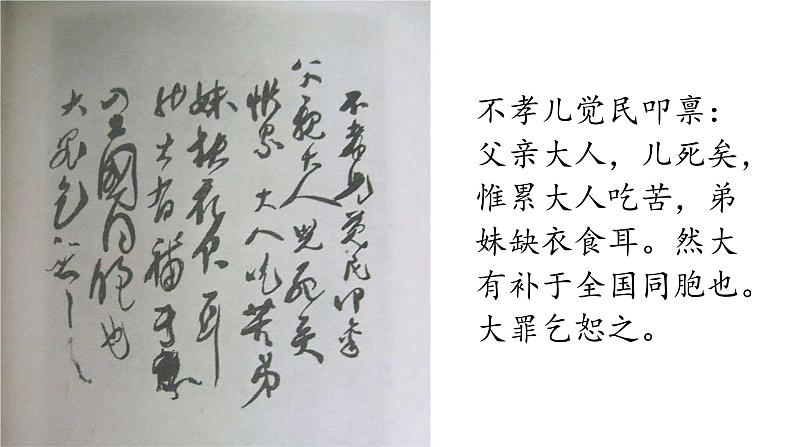 不孝儿觉民叩禀
父親大人儿死矣
惟累 大人吃苦弟
妹缺衣食耳
然大有補于
全國同胞也
大罪乞恕之
不孝儿觉民叩禀：
父亲大人，儿死矣，
惟累大人吃苦，弟
妹缺衣食耳。然大
有补于全国同胞也。
大罪乞恕之。